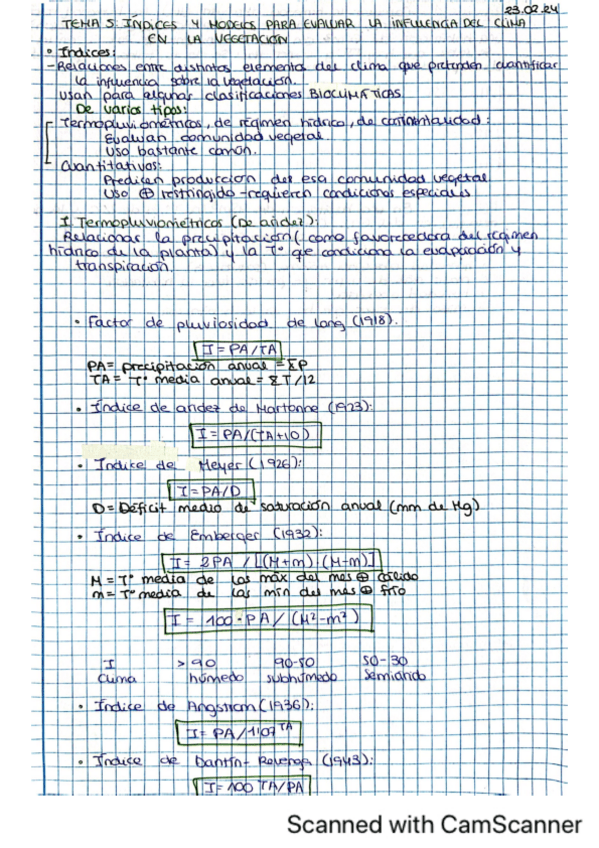 23.02.24
TEMA 5: ÍNDICES Y MODELOS PARA EVALUAR LA INFLUENCIA DEL CLIMA
EN LA VEGETACIÓN
• Índices:
- Relaciones entre distintos elementos del clima que pretenden cuantificar
la influencia sobre la vegetación.
Usan para algunas clasificaciones BIOCLIMÁTICAS
De varios tipos:
Termopluviométricos, de régimen hídrico, de continentalidad:
Evaluan comunidad vegetal.
Uso bastante común.
Cuantitativos:
Predicen producción der esa comunidad vegetal
Uso ⊕ restringido - requieren condiciones especiales
I. Termopluviométricos (De aridez):
Relacionar la precipitación (como favorecedora del régimen
hídrico de la planta) y la Tª que condiciona la evaporación y
transpiración.
• Factor de pluviosidad de Lang (1918).
I = PA/TA
PA = precipitación anual = ΣP
TA = Tª media anual = ΣT/12
• Índice de aridez de Martonne (1923):
I = PA/(TA+10)
• Índice de Meyer (1926):
I = PA/D
D = Déficit medio de saturación anual (mm de Hg)
• Índice de Emberger (1932):
I = 2PA / [(M+m)·(M-m)]
M = Tª media de las máx del mes ⊕ cálido
m = Tª media de las mín del mes ⊕ frío
I = 100·PA / (M²-m²)
I >90 90-50 50-30
Clima húmedo subhúmedo Semiárido
• Índice de Angstrom (1936):
I = PA/1'07^TA
• Índice de Dantín-Revenga (1943):
I = 100 TA/PA
Scanned with CamScanner